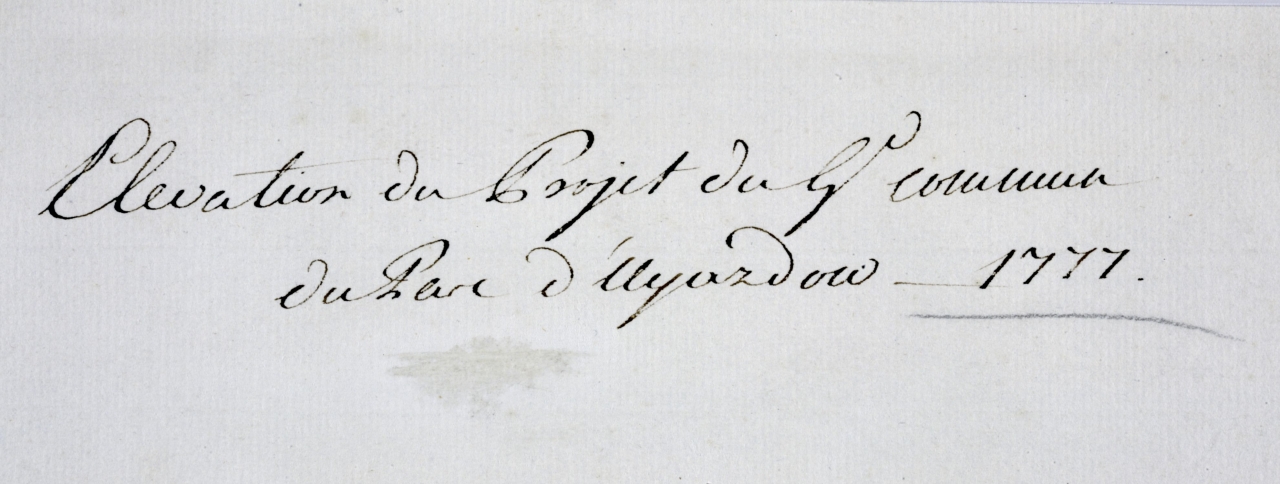 Elevation du Projet du Gd commun
du Parc d'Ujazdow — 1777.